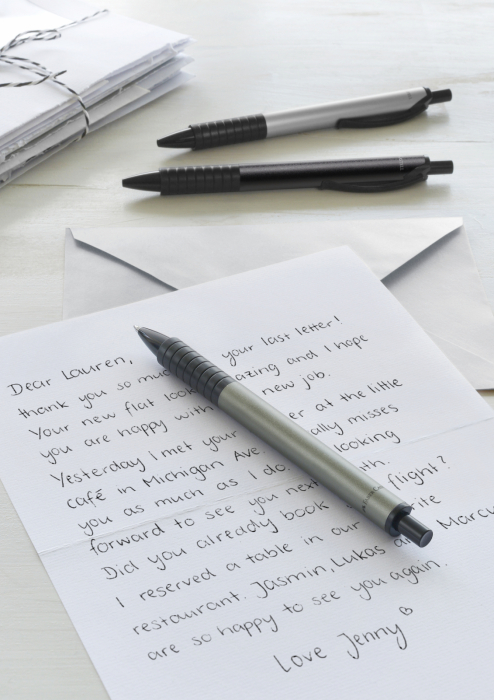 Dear Lauren,
thank you so muc your last letter!
Your new flat look azing and I hope
you are happy with new job.
Yesterday i met your er at the little
café in Michigan Ave. ally misses
you as much as I do. looking
forward to see you next th.
Did you already book flight?
I reserved a table in our rite
restaurant. Jasmin, Lukas a Marcu
are so happy to see you again.
Love Jenny